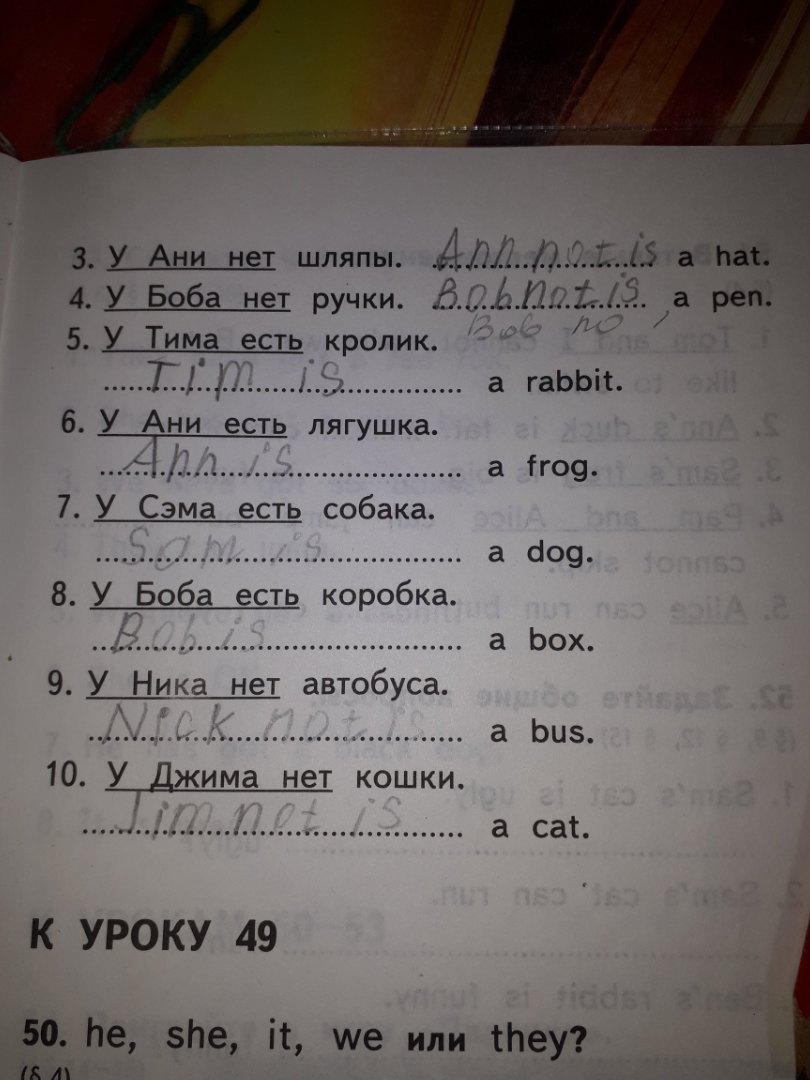 3. У Ани нет шляпы. Ann not is a hat.
4. У Боба нет ручки. Bob not is a pen.
Bob no
5. У Тима есть кролик.
Tim is a rabbit.
6. У Ани есть лягушка.
Ann is a frog.
7. У Сэма есть собака.
Sam is a dog.
8. У Боба есть коробка.
Bob is a box.
9. У Ника нет автобуса.
Nick not is a bus.
10. У Джима нет кошки.
Jim not is a cat.
К УРОКУ 49
50. he, she, it, we или they?
(§ 4)